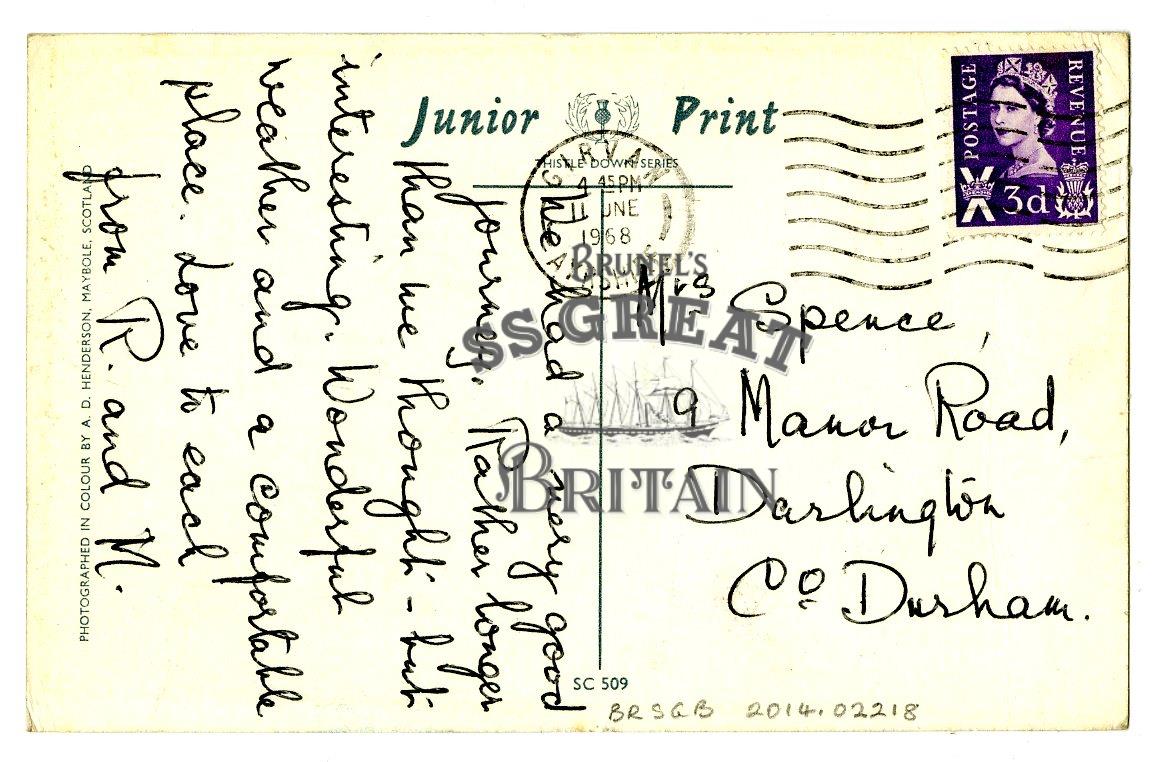 Junior Print
THISTLE DOWN SERIES
GIRVAN
4 45PM
11 JUNE
1968
AYRSHIRE
POSTAGE
REVENUE
3d
We had a very good
journey. Rather longer
than we thought - but
interesting. Wonderful
weather and a comfortable
place. Love to each
from R. and M.
Mrs Spence,
9 Manor Road,
Darlington
Co. Durham.
BRUNEL'S
SS GREAT
BRITAIN
PHOTOGRAPHED IN COLOUR BY A. D. HENDERSON, MAYBOLE, SCOTLAND
SC 509
BRSGB 2014.02218